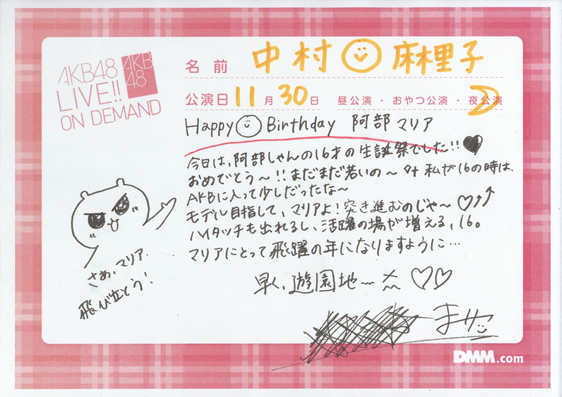 AKB48
LIVE!!
ON DEMAND
AKB
48
名前 中村 麻里子
公演日 11月30日 昼公演・おやつ公演・夜公演
Happy Birthday 阿部マリア
今日は、阿部しゃんの16才の生誕祭でした!!
おめでとう〜!!まだまだ若いの〜 私が16の時は、
AKBに入って少しだったな〜
モデル目指して、マリアよ!突き進むのじゃ〜♡↑↑
ハイタッチも出れるし、活躍の場が増える、16。
マリアにとって飛躍の年になりますように…
早く、遊園地〜 ♡♡
さぁ、マリア
飛び立とう!
まりこ
DMM.com